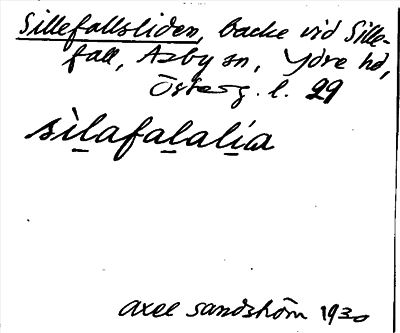 Sillefallsliden, backe vid Sille-
fall, Asby sn, Ydre hd,
Österg. l. 29
sìlafalalia
Axel Sandström 1930